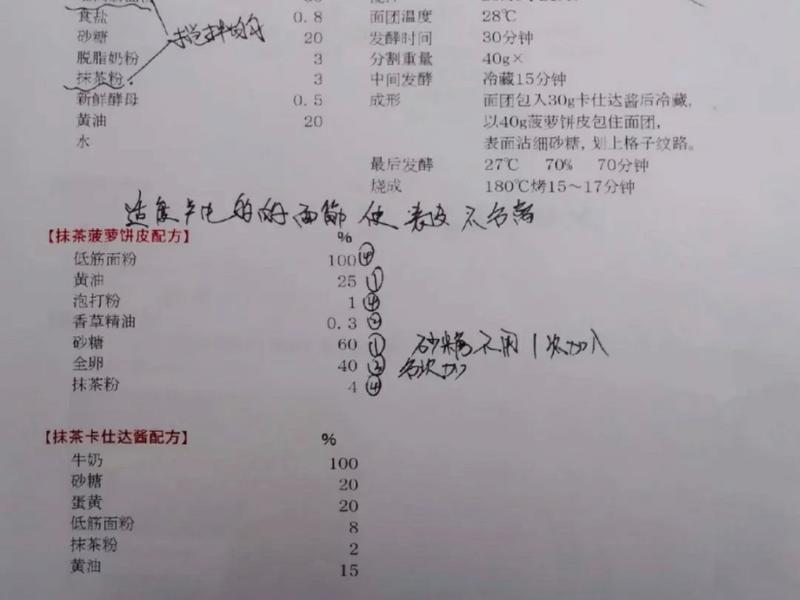 食盐 0.8 面团温度 28℃
砂糖 20 发酵时间 30分钟
脱脂奶粉 3 分割重量 40g×
抹茶粉 3 中间发酵 冷藏15分钟
新鲜酵母 0.5 成形 面团包入30g卡仕达酱后冷藏,
黄油 20 以40g菠萝饼皮包住面团,
水 表面沾细砂糖,划上格子纹路。
最后发酵 27℃ 70% 70分钟
烧成 180℃烤15～17分钟
面 使表皮不
【抹茶菠萝饼皮配方】 %
低筋面粉 100 ④
黄油 25 ①
泡打粉 1 ④
香草精油 0.3
砂糖 60 ① 砂糖不用1次加入
全卵 40 多次加
抹茶粉 4 ④
【抹茶卡仕达酱配方】 %
牛奶 100
砂糖 20
蛋黄 20
低筋面粉 8
抹茶粉 2
黄油 15